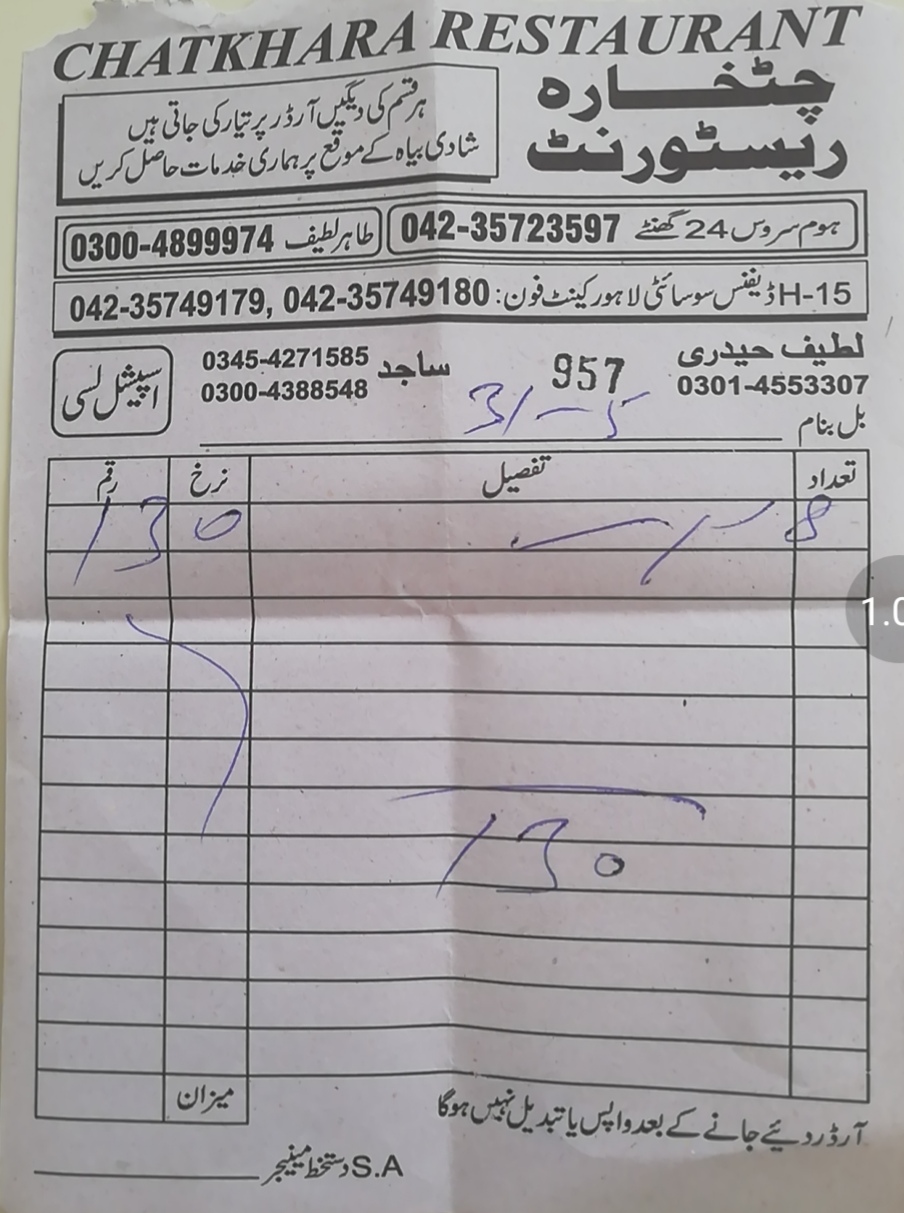 CHATKHARA RESTAURANT
چٹخارہ
ریسٹورنٹ
ہر قسم کی دیگیں آرڈر پر تیار کی جاتی ہیں
شادی بیاہ کے موقع پر ہماری خدمات حاصل کریں
ہوم سروس 24 گھنٹے 042-35723597
طاہر لطیف 0300-4899974
H-15 ڈیفنس سوسائٹی لاہور کینٹ فون: 042-35749179, 042-35749180
لطیف حیدری
0301-4553307
957
ساجد 0345-4271585
0300-4388548
اسپیشل لسی
31-5
بل بنام
تعداد تفصیل نرخ رقم
8
130
130
میزان
آرڈر دیئے جانے کے بعد واپس یا تبدیل نہیں ہوگا
S.A دستخط مینیجر
1.0